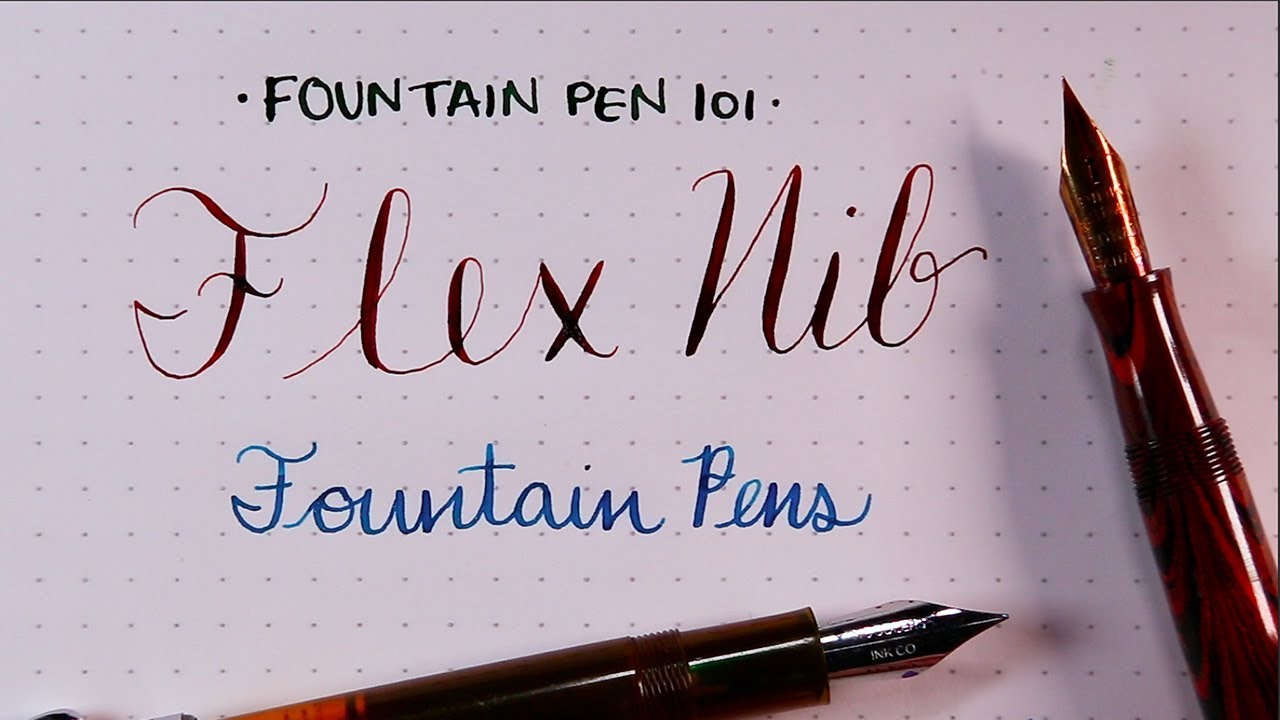 · FOUNTAIN PEN 101 ·
Flex Nib
Fountain Pens
INK CO